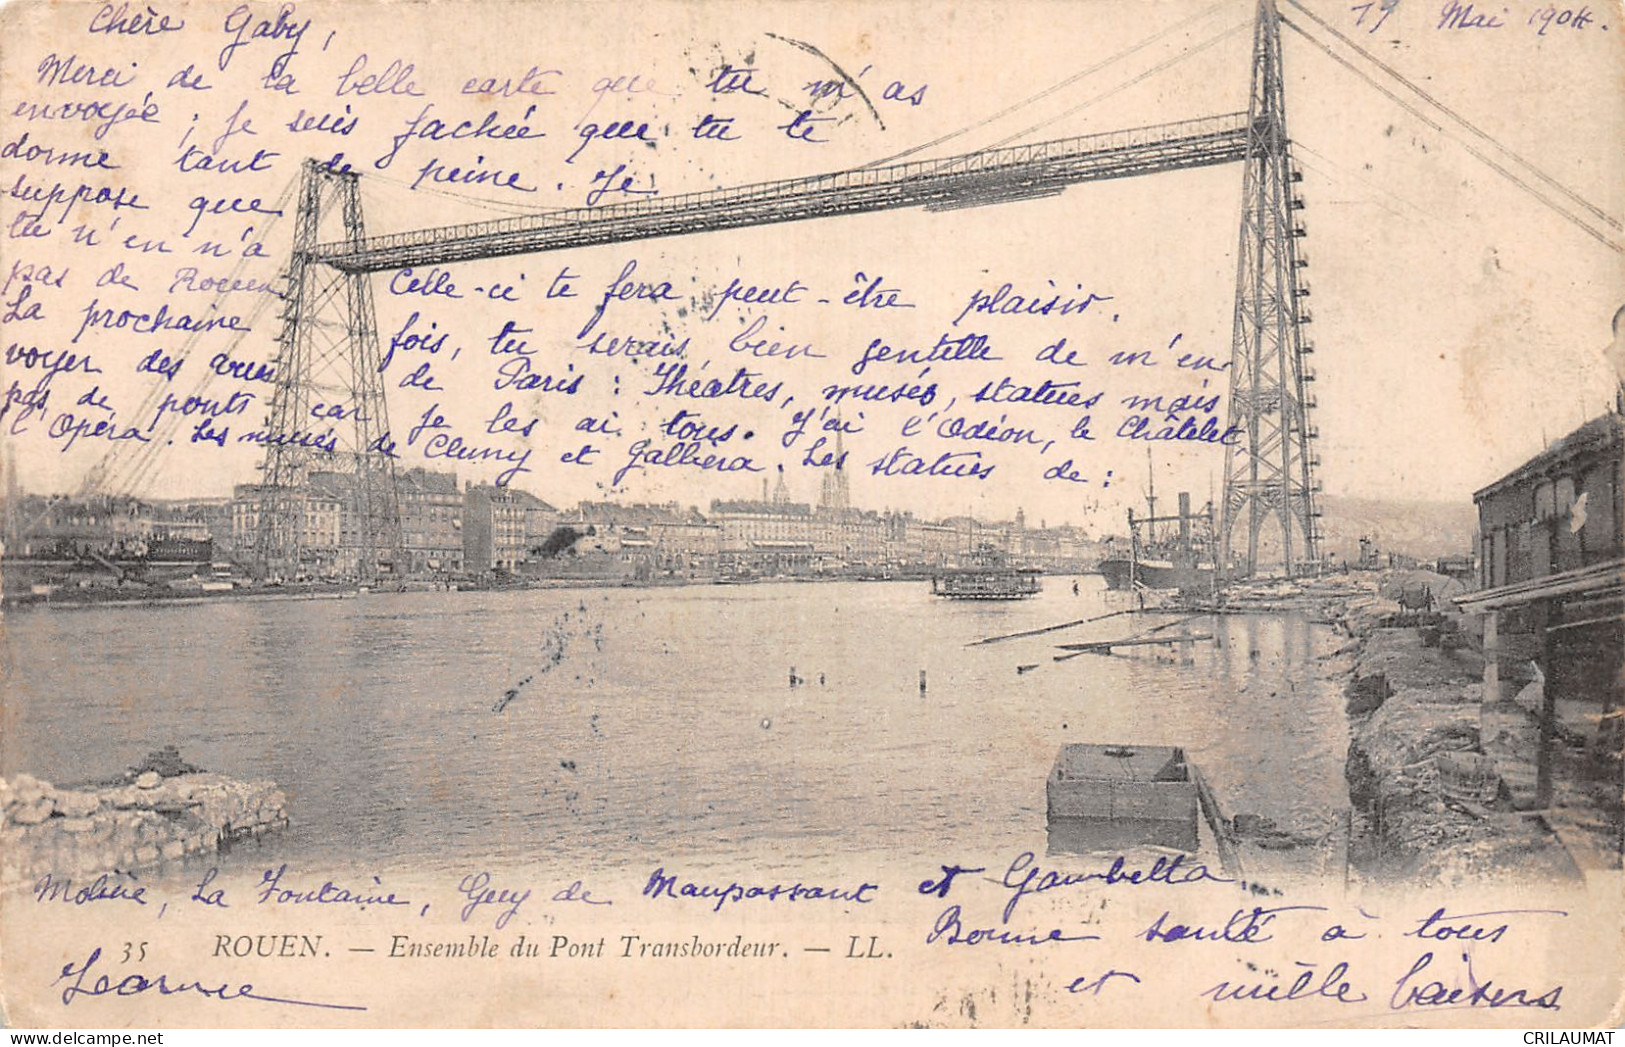 Chère Gaby,
19 Mai 1904.
Merci de la belle carte que tu m'as
envoyée ; Je suis fachée que tu te
donne tant de peine. Je
suppose que
tu n'en n'a
pas de Rouen
Celle-ci te fera peut-être plaisir.
La prochaine fois, tu serais bien gentille de m'en-
voyer des vues de Paris : Théatres, musés, statues mais
pas de ponts car je les ai tous. J'ai l'Odéon, le Châtelet
l'Opéra. Les musés de Cluny et Galliera. Les statues de :
Molière, La Fontaine, Guy de Maupassant et Gambetta.
Bonne santé à tous
35 ROUEN. — Ensemble du Pont Transbordeur. — LL.
et mille baisers
Jeanne
CRILAUMAT